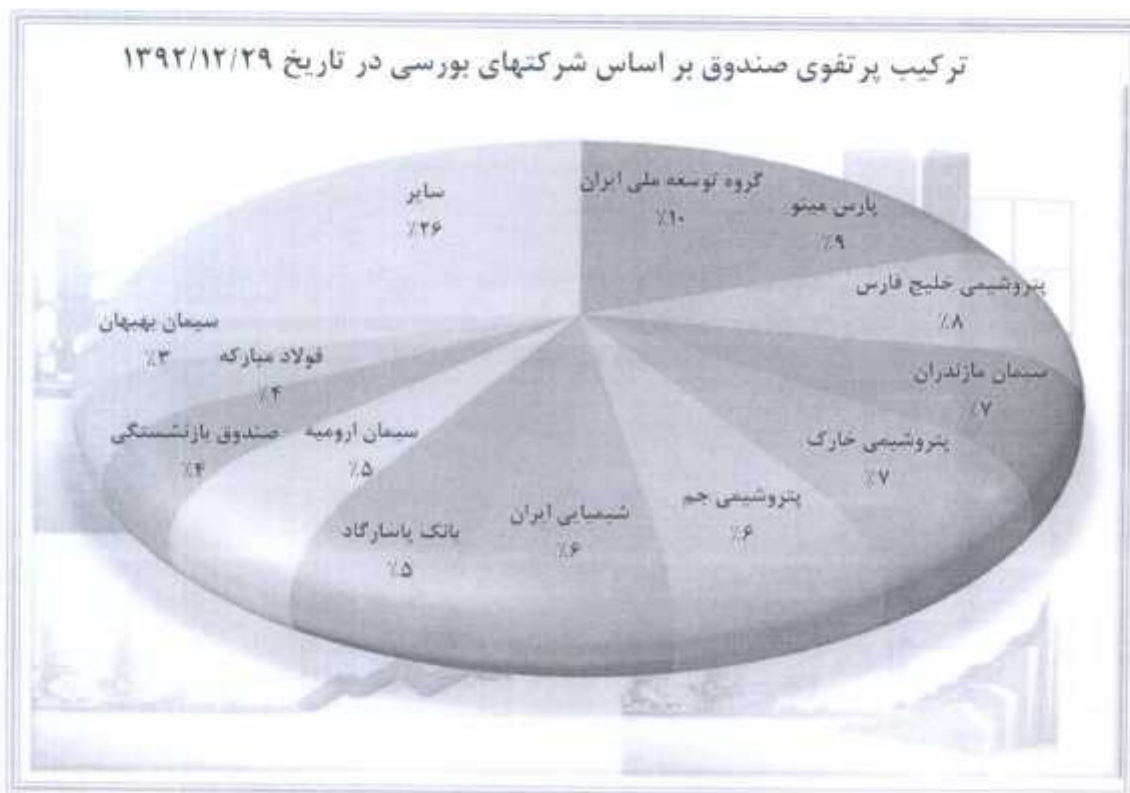 ترکیب پرتفوی صندوق بر اساس شرکتهای بورسی در تاریخ ۱۳۹۲/۱۲/۲۹
گروه توسعه ملی ایران
٪۱۰
پارس مینو
٪۹
پتروشیمی خلیج فارس
٪۸
سیمان مازندران
٪۷
پتروشیمی خارک
٪۷
پتروشیمی جم
٪۶
شیمیایی ایران
٪۶
بانک پاسارگاد
٪۵
سیمان ارومیه
٪۵
صندوق بازنشستگی
٪۴
فولاد مبارکه
٪۴
سیمان بهبهان
٪۳
سایر
٪۲۶